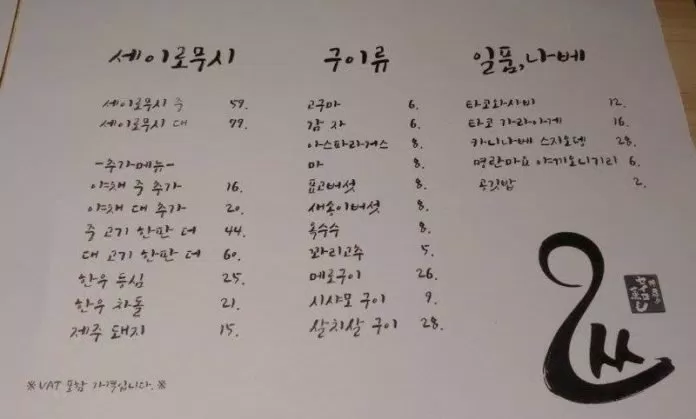 세이로무시
세이로무시 중 59.
세이로무시 대 79.
-추가메뉴-
야채 중 추가 16.
야채 대 추가 20.
중 고기 한판 더 44.
대 고기 한판 더 60.
한우 등심 25.
한우 차돌 21.
제주 돼지 15.
구이류
고구마 6.
감자 6.
아스파라거스 8.
마 8.
표고버섯 8.
새송이버섯 8.
옥수수 8.
꽈리고추 5.
메로구이 26.
시샤모 구이 9.
살치살 구이 28.
일품,나베
타코와사비 12.
타코 가라아게 16.
카니나베 스지오뎅 28.
명란마요 야끼오니기리 6.
공깃밥 2.
※VAT 포함 가격입니다.※